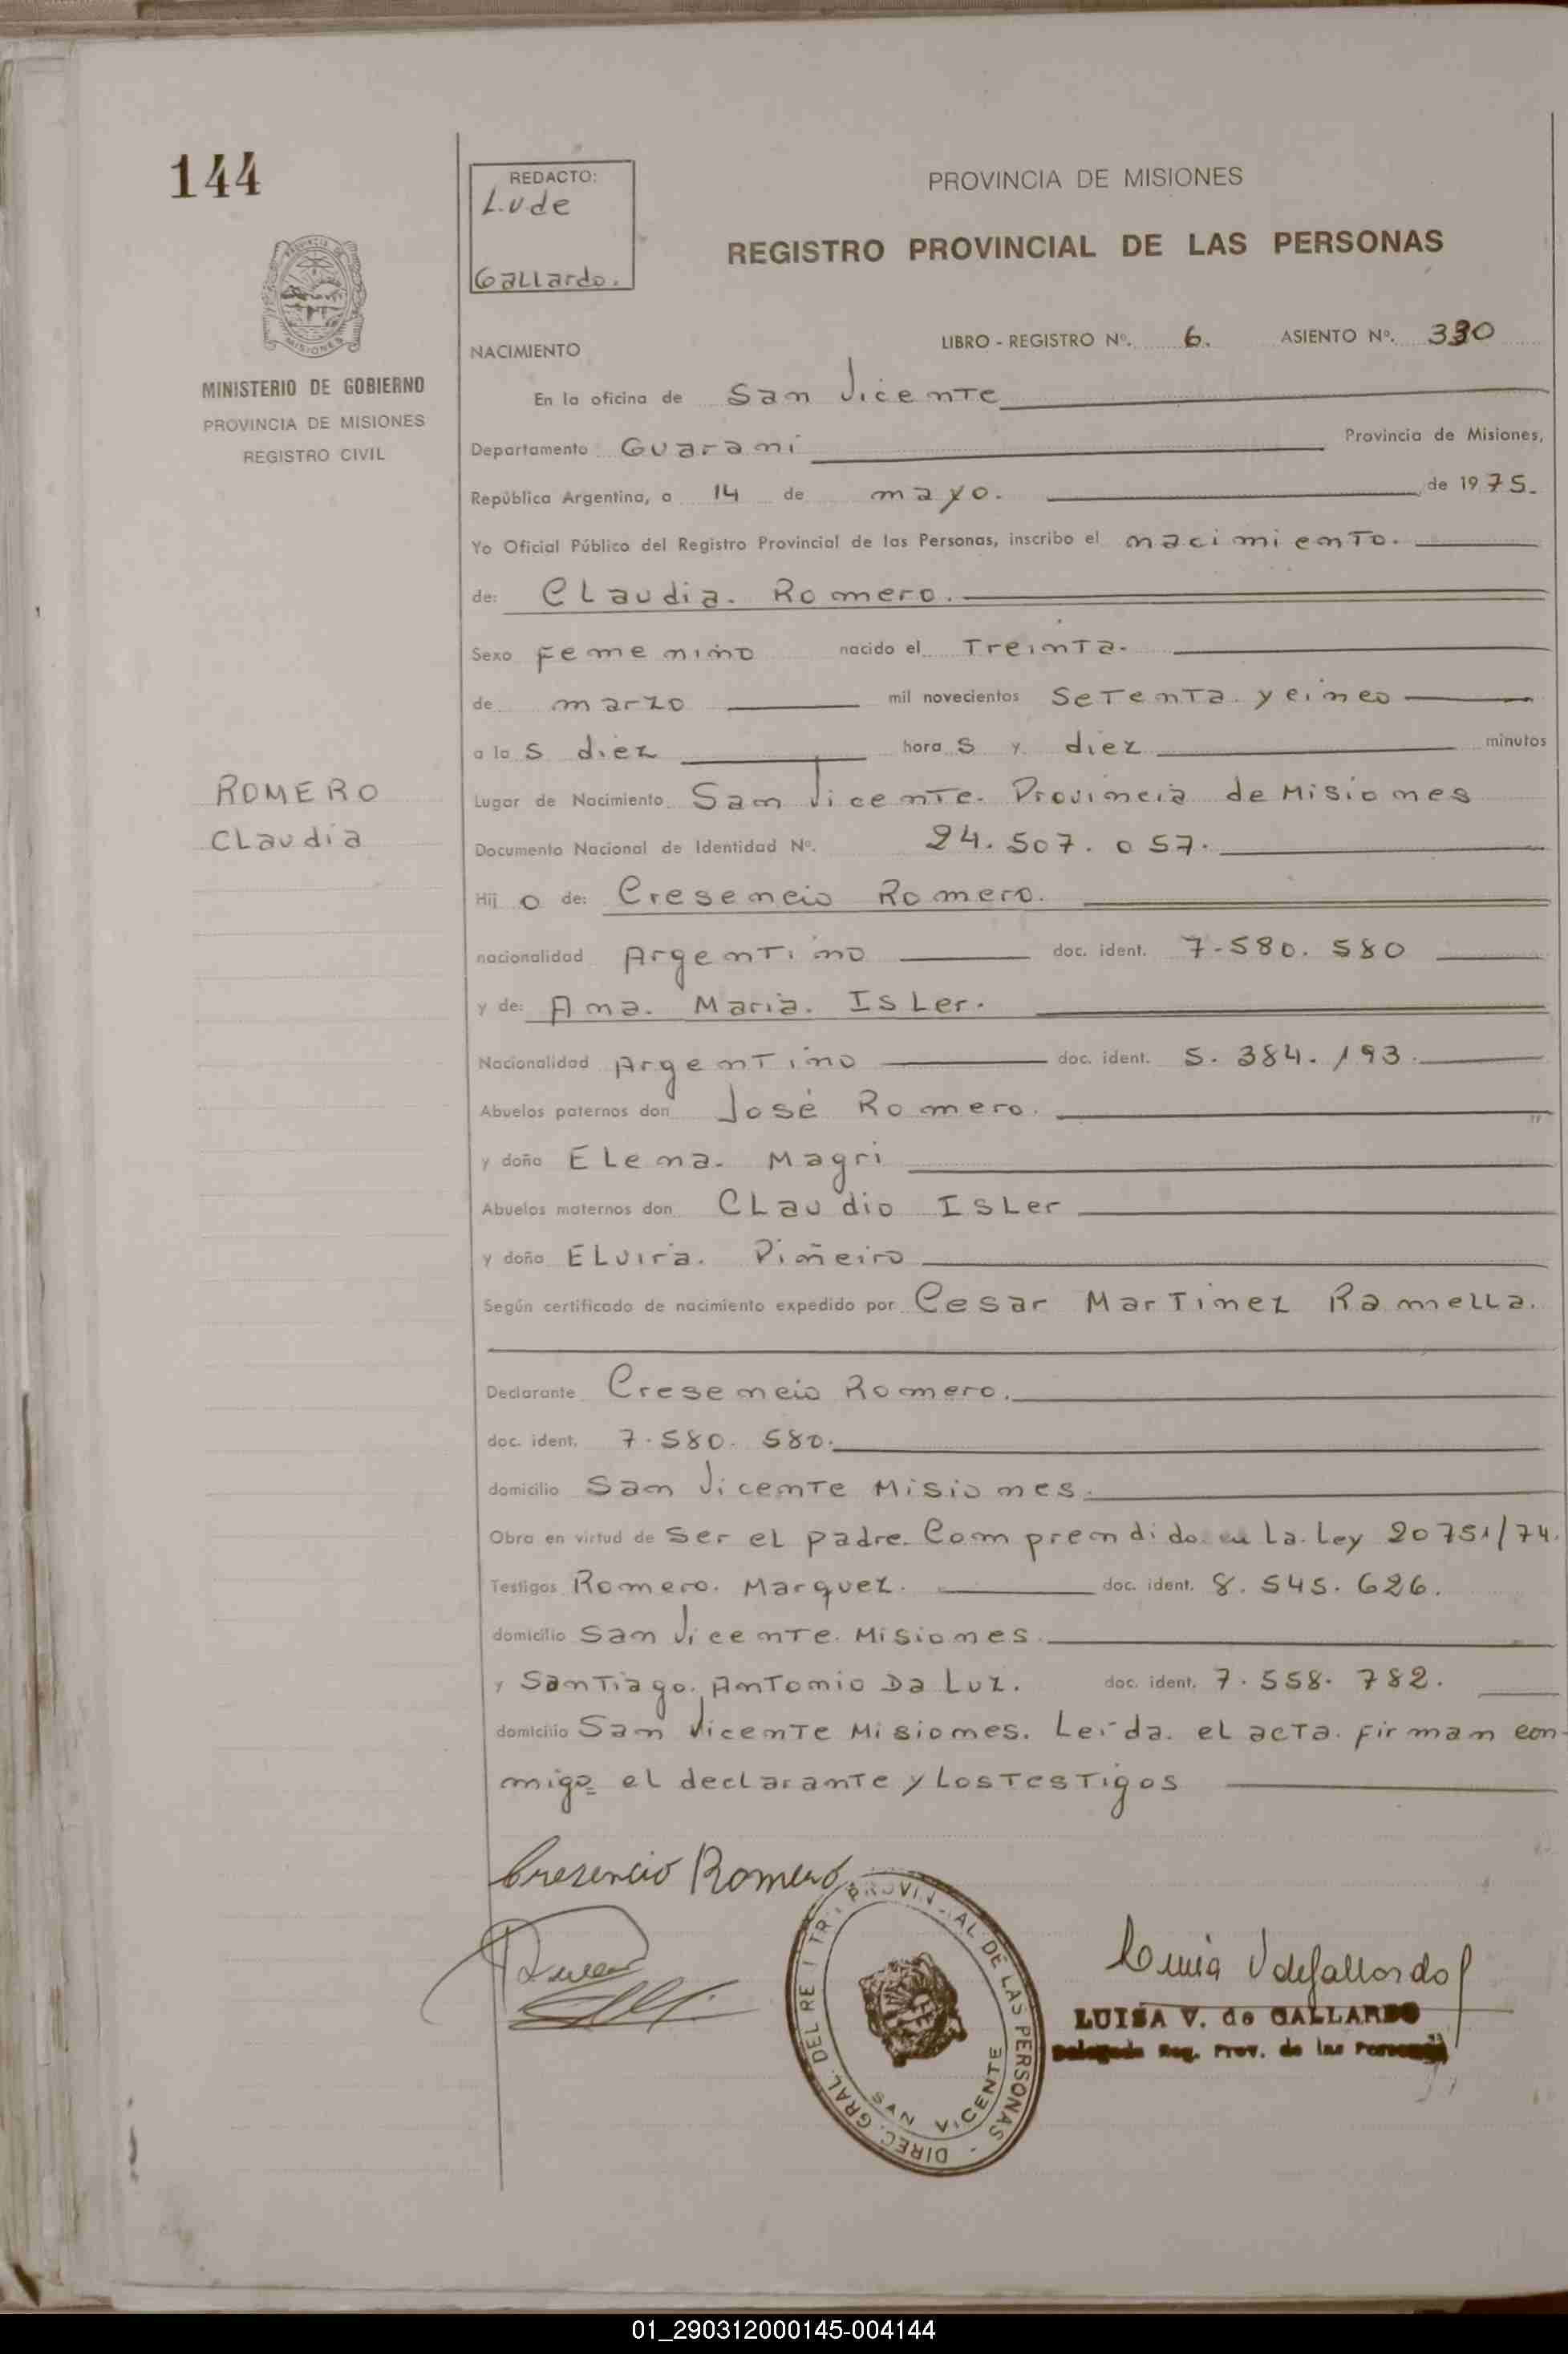 144
REDACTO:
L.V de
Gallardo.
PROVINCIA DE MISIONES
REGISTRO PROVINCIAL DE LAS PERSONAS
MISIONES
MINISTERIO DE GOBIERNO
PROVINCIA DE MISIONES
REGISTRO CIVIL
NACIMIENTO
LIBRO - REGISTRO Nº. 6. ASIENTO Nº. 330
En la oficina de San Vicente
Departamento Guaraní Provincia de Misiones,
República Argentina, a 14 de mayo. de 1975.
Yo Oficial Público del Registro Provincial de las Personas, inscribo el nacimiento.
de: Claudia. Romero.
Sexo Femenino nacido el Treinta.
de marzo mil novecientos Setenta y cinco
a las diez horas y diez minutos
ROMERO
Claudia
Lugar de Nacimiento San Vicente. Provincia de Misiones
Documento Nacional de Identidad Nº. 24.507.057.
Hijo de: Cresencio Romero.
nacionalidad Argentino doc. ident. 7.580.580
y de: Ana. Maria. Isler.
Nacionalidad Argentino doc. ident. 5.384.193.
Abuelos paternos don José Romero.
y doña Elena. Magri
Abuelos maternos don Claudio Isler
y doña Elvira. Piñeiro
Según certificado de nacimiento expedido por Cesar Martinez Ramella.
Declarante Cresencio Romero.
doc. ident. 7.580.580.
domicilio San Vicente Misiones.
Obra en virtud de ser el padre. Comprendido en La Ley 20751/74.
Testigos Romero. Marquez. doc. ident. 8.545.626.
domicilio San Vicente. Misiones
y Santiago. Antonio Da Luz. doc. ident. 7.558.782.
domicilio San Vicente Misiones. Leída. el acta. firman con-
migo el declarante y Los Testigos
Cresencio Romero
DIREC. GRAL. DEL REGISTRO PROVINCIAL DE LAS PERSONAS
SAN VICENTE
Luisa V de Gallardo
LUISA V. de GALLARDO
Delegada Reg. Prov. de las Personas
01_290312000145-004144